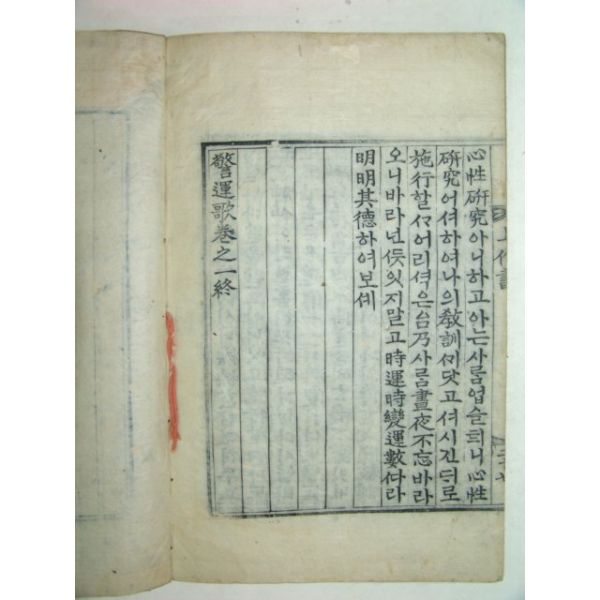 心性硏究아니하고아는사람업슬테니心性
硏究어셔하여나의敎訓씨닷고셔시긴더로
施行할사어리셕은台乃사람晝夜不忘바라
오니바라넌듯잇지말고時運時變運數다라
明明其德하여보셰
警運歌卷之一終